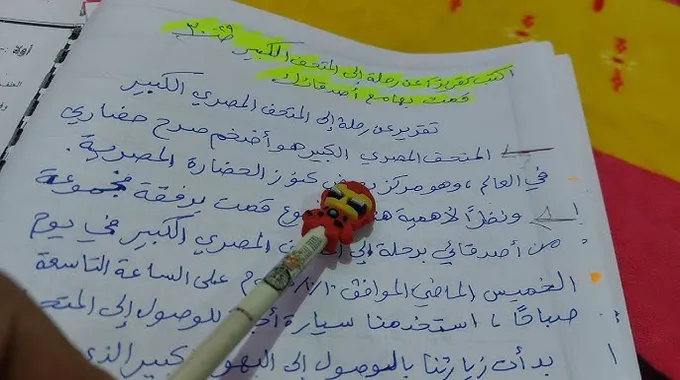 اكتب تقريرًا عن رحلة إلى المتحف الكبير
قمت بها مع أصدقائك
تقرير عن رحلة إلى المتحف المصري الكبير
المتحف المصري الكبير هو أضخم صرح حضاري
في العالم، وهو مركز كنوز الحضارة المصرية.
ونظرًا لأهمية قمت برفقة مجموعة
من أصدقائي برحلة إلى المصري الكبير في يوم
الخميس الماضي الموافق على الساعة التاسعة
صباحًا، استخدمنا سيارة للوصول إلى
بدأت زيارتنا بالوصول إلى البهو الكبير الذي